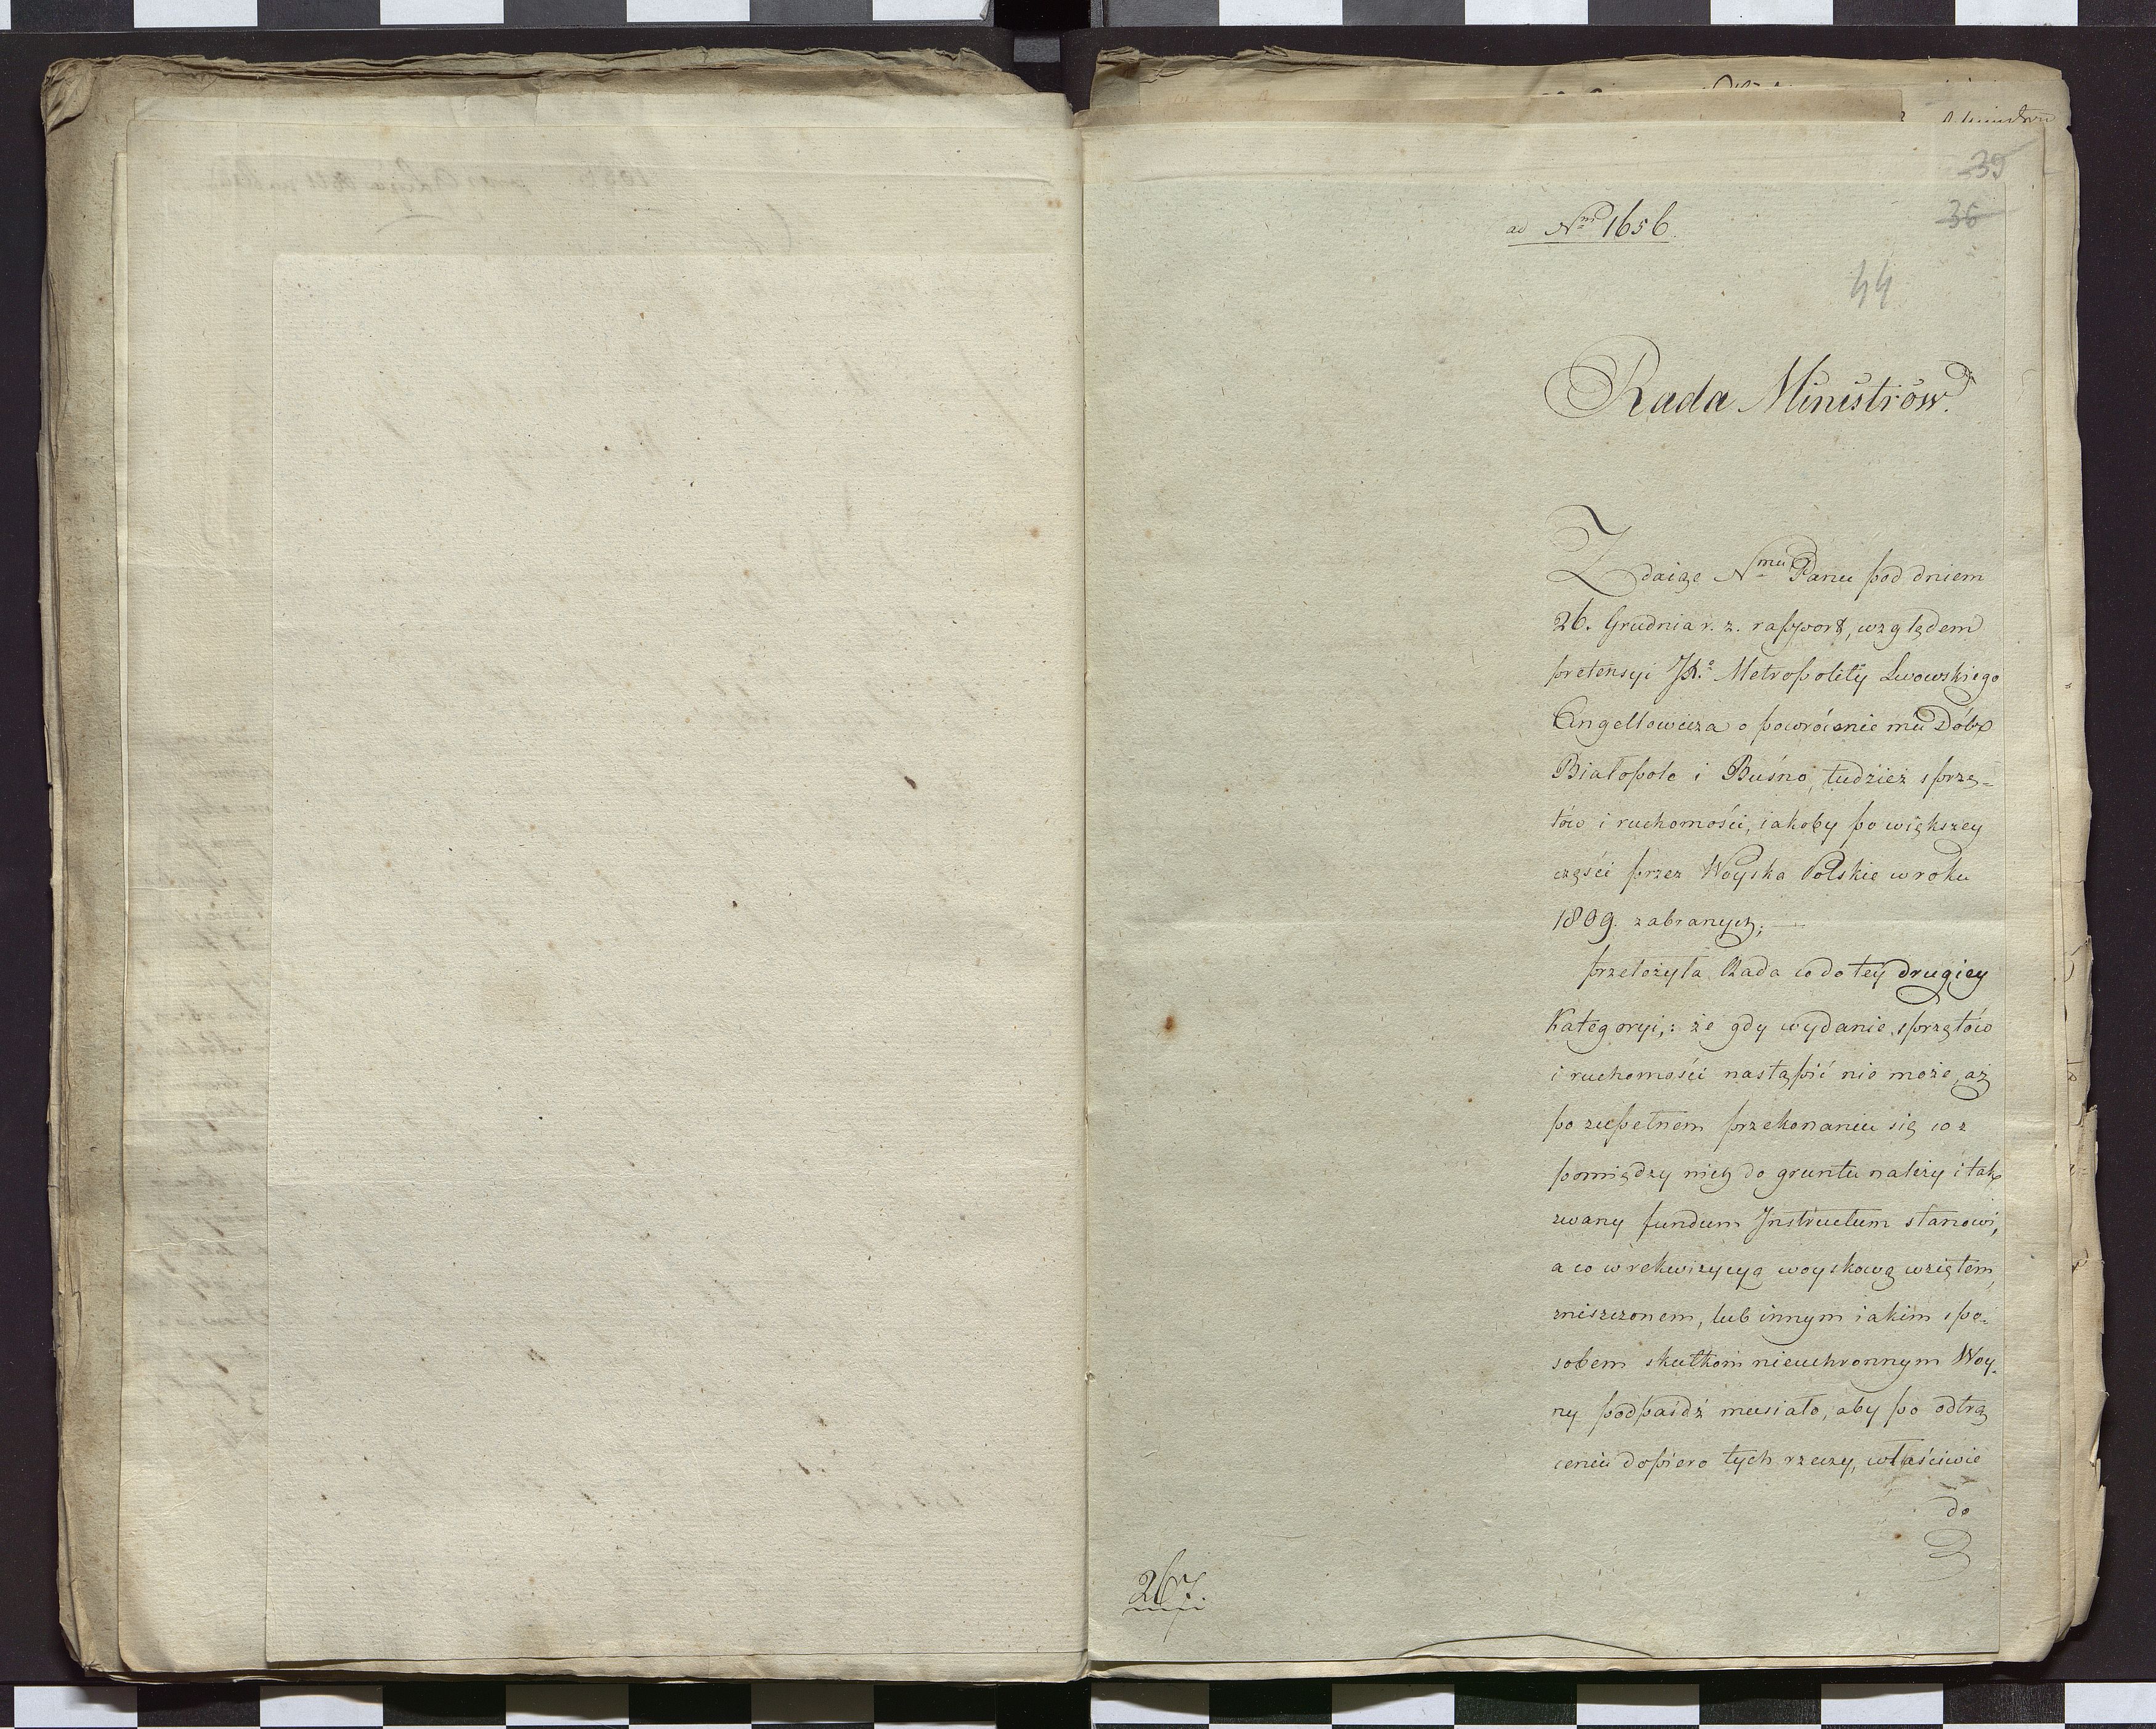 39
ad Nrum 1656.
36
44
Rada Ministrów.
Zdaiąc Nmu Panu pod dniem
26. Grudnia r. z. rapport, względem
pretensyi JX. Metropolity Lwowskiego
Angellowicza o powrócenie mu Dóbr
Białopole i Buśno, tudzież sprzę=
tów i ruchomości, iakoby po większey
części przez Woyska Polskie w roku
1809. zabranych; —
przełożyła Rada co do téy drugiey
Kategoryi,: że gdy wydanie sprzętów
i ruchomości nastąpić nie może, aż
po zupełnem przekonaniu się co z
pomiędzy nich do gruntu należy i tak
zwany fundum Instructum stanowi,
a co w rekwizycyą woyskową wziętem,
zniszczonem, lub innym iakim spo=
sobem skutkom nieuchronnym Woy=
ny podpaśdź musiało, aby po odtrą
ceniu dopiero tych rzeczy, właściwie
do
267.